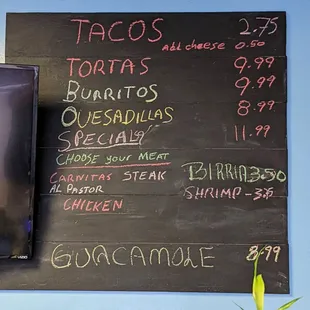 TACOS 2.75
Add cheese 0.50
TORTAS 9.99
BURRITOS 9.99
QUESADILLAS 8.99
SPECIAL 11.99
CHOOSE your MEAT
CARNITAS STEAK BIRRIA 3.50
AL PASTOR SHRIMP - 3.5
CHICKEN
GUACAMOLE 8.99
VIZIO